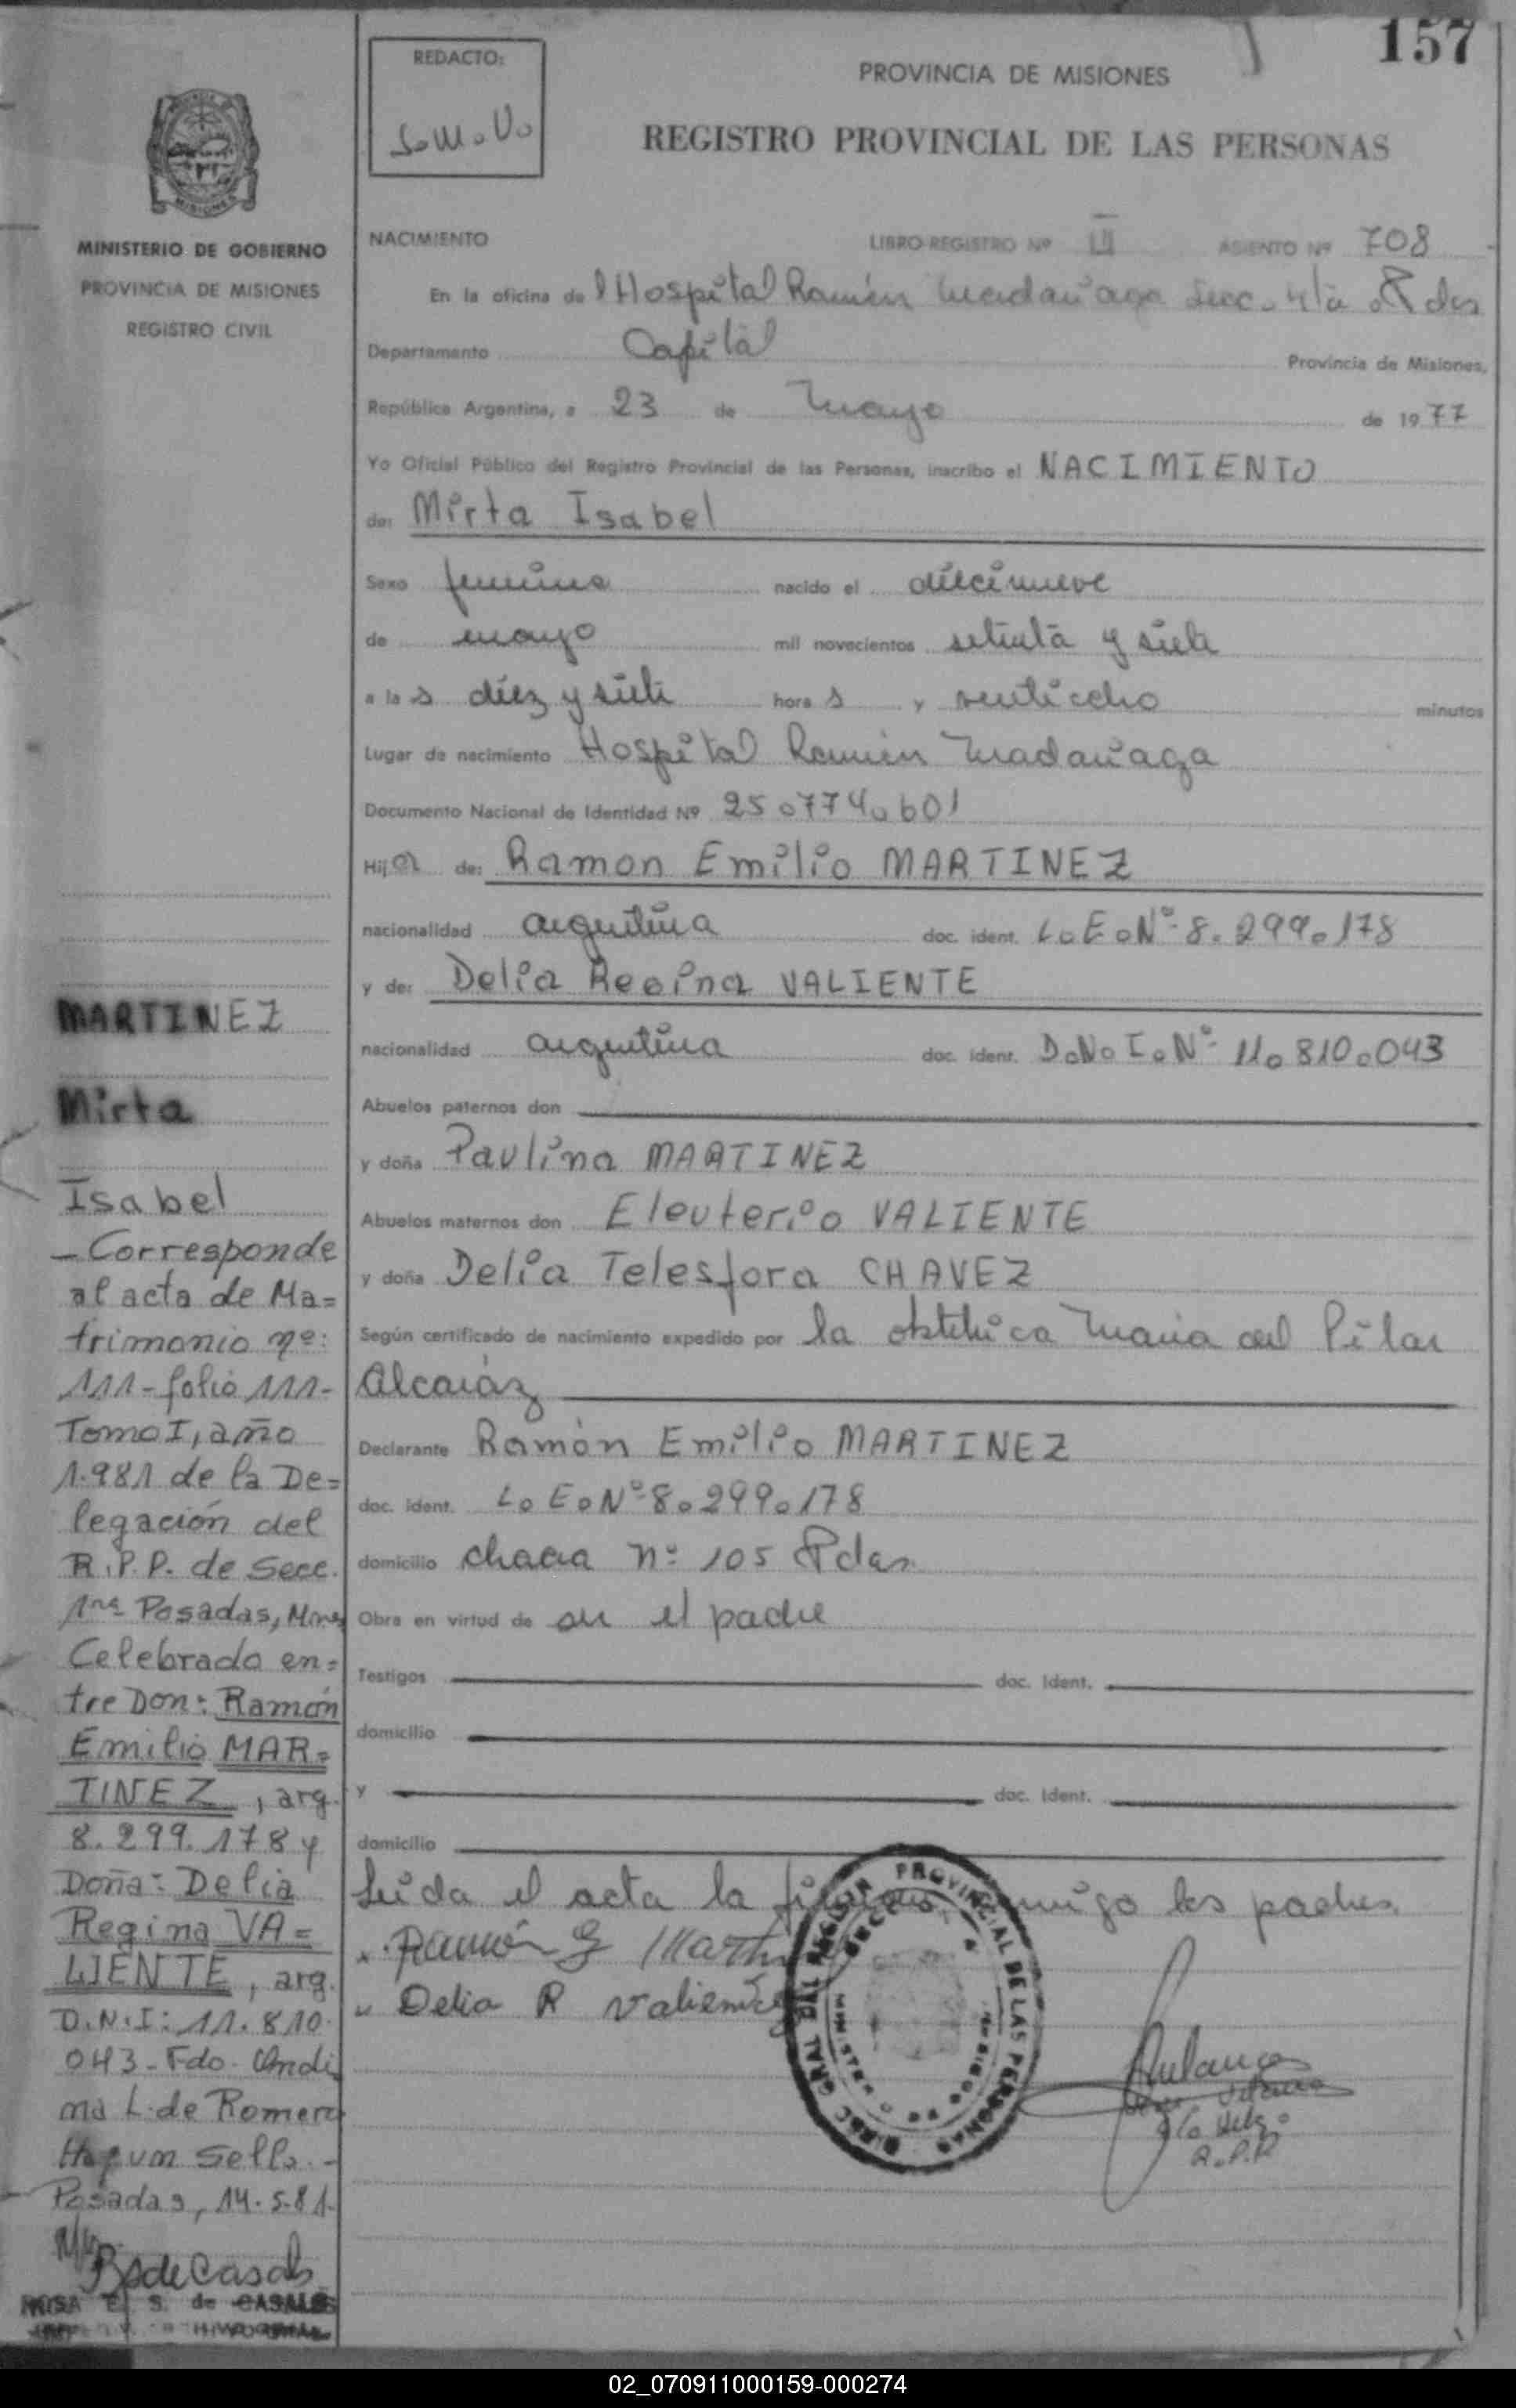 157
REDACTO:
S.M.V.
PROVINCIA DE MISIONES
REGISTRO PROVINCIAL DE LAS PERSONAS
MINISTERIO DE GOBIERNO
PROVINCIA DE MISIONES
REGISTRO CIVIL
NACIMIENTO LIBRO-REGISTRO Nº II ASIENTO Nº 708
En la oficina del Hospital Ramón Madariaga Secc. 4ta Pdas
Departamento Capital Provincia de Misiones,
República Argentina, a 23 de Mayo de 1977
Yo Oficial Público del Registro Provincial de las Personas, inscribo el NACIMIENTO
de: Mirta Isabel
Sexo femenino nacido el diecinueve
de mayo mil novecientos setenta y siete
a las diez y siete horas y veintiocho minutos
Lugar de nacimiento Hospital Ramón Madariaga
Documento Nacional de Identidad Nº 25.774.601
Hija de: Ramon Emilio MARTINEZ
nacionalidad argentina doc. ident. L.E.Nº 8.299.178
y de: Delia Regina VALIENTE
nacionalidad argentina doc. ident. D.N.I.Nº 11.810.043
Abuelos paternos don
y doña Paulina MARTINEZ
Abuelos maternos don Eleuterio VALIENTE
y doña Delia Telesfora CHAVEZ
Según certificado de nacimiento expedido por la obstetrica Maria del Pilar
Alcaráz
Declarante Ramón Emilio MARTINEZ
doc. ident. L.E.Nº 8.299.178
domicilio chacra nº 105 Pdas.
Obra en virtud de ser el padre
Testigos doc. ident.
domicilio
y doc. ident.
domicilio
Leida el acta la firman conmigo los padres.
Ramón E Martinez
Delia R Valiente
DIREC. GRAL DEL REGISTRO PROVINCIAL DE LAS PERSONAS
R.P.P.
MARTINEZ
Mirta
Isabel
- Corresponde
al acta de Ma=
trimonio nº:
111 - folio 111 -
Tomo I, año
1.981 de la De=
legación del
R.P.P. de Secc.
1ra Posadas, Mnes
Celebrado en=
tre Don: Ramón
Emilio MAR=
TINEZ, arg.
8.299.178 y
Doña: Delia
Regina VA=
LIENTE, arg.
D.N.I: 11.810.
043 - Fdo. Undi
na L. de Romero
Hay un sello. -
Posadas, 14.5.81.
RS de Casals
ROSA E. S. de CASALS
02_070911000159-000274